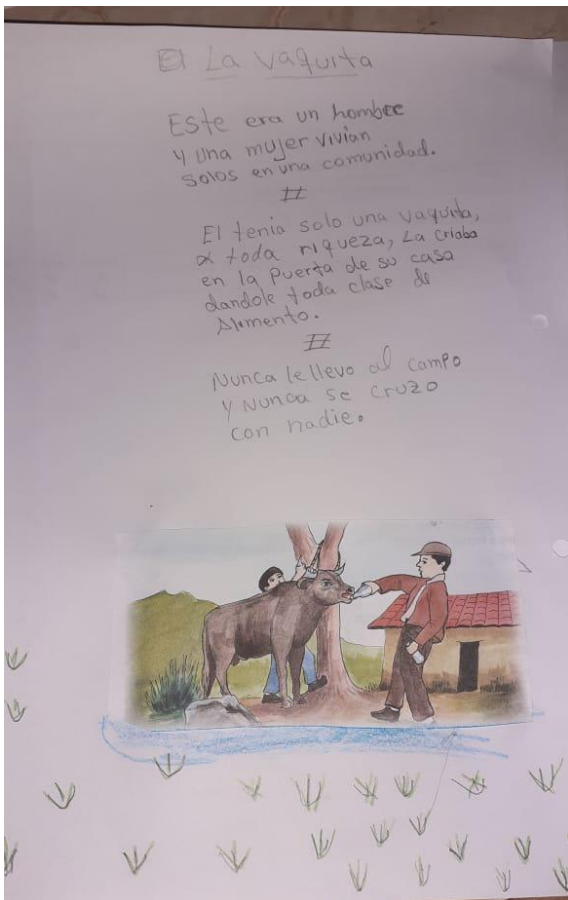 El La vaquita
Este era un hombre
y una mujer vivian
solos en una comunidad.
#
El tenia solo una vaquita,
toda riqueza, La criaba
en la Puerta de su casa
dandole toda clase de
Alimento.
#
Nunca le llevo al campo
y Nunca se cruzo
con nadie.